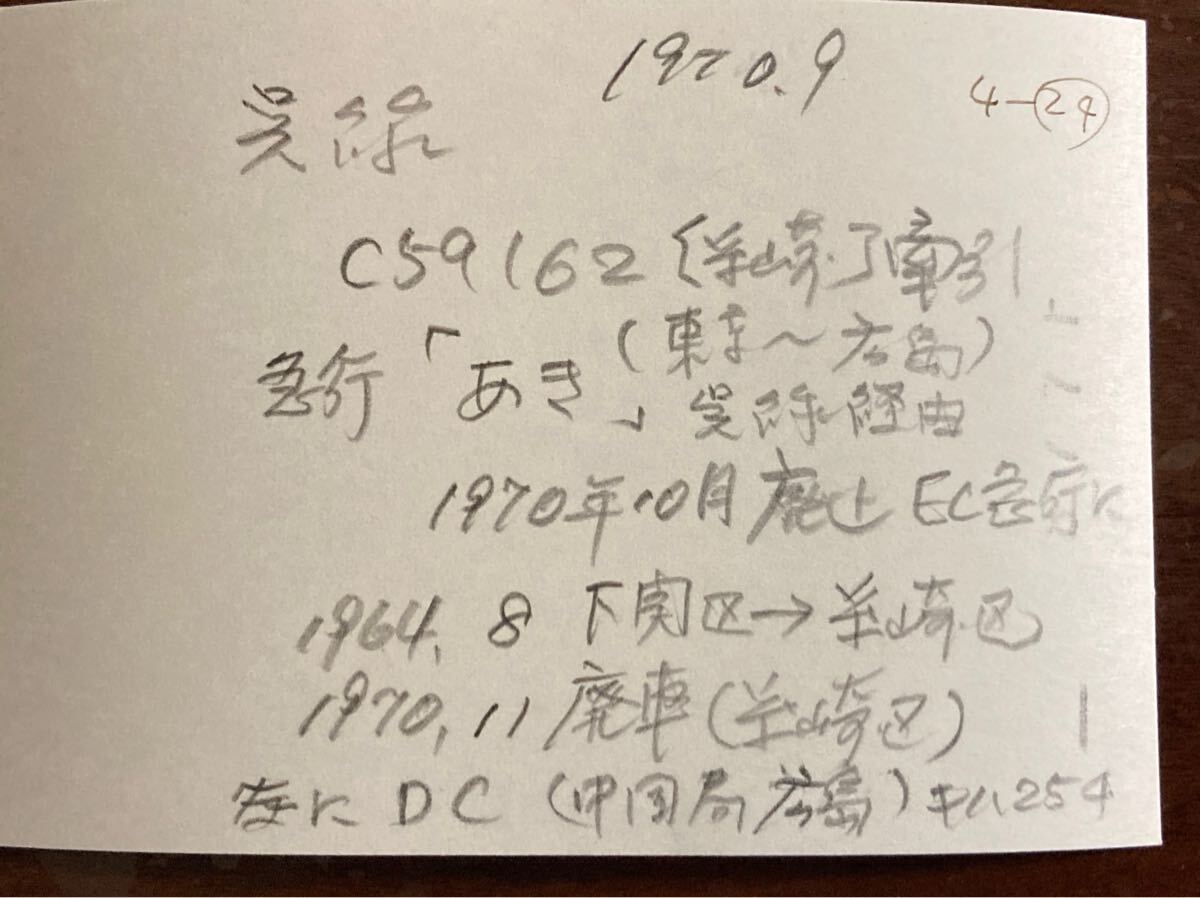 1970.9
4-24
呉線
C59162〔糸崎〕牽引
急行「あき」(東京〜広島)
呉線経由
1970年10月廃止 EC急行に
1964.8 下関区→糸崎区
1970.11 廃車(糸崎区)
左に DC (中国局広島) キハ254